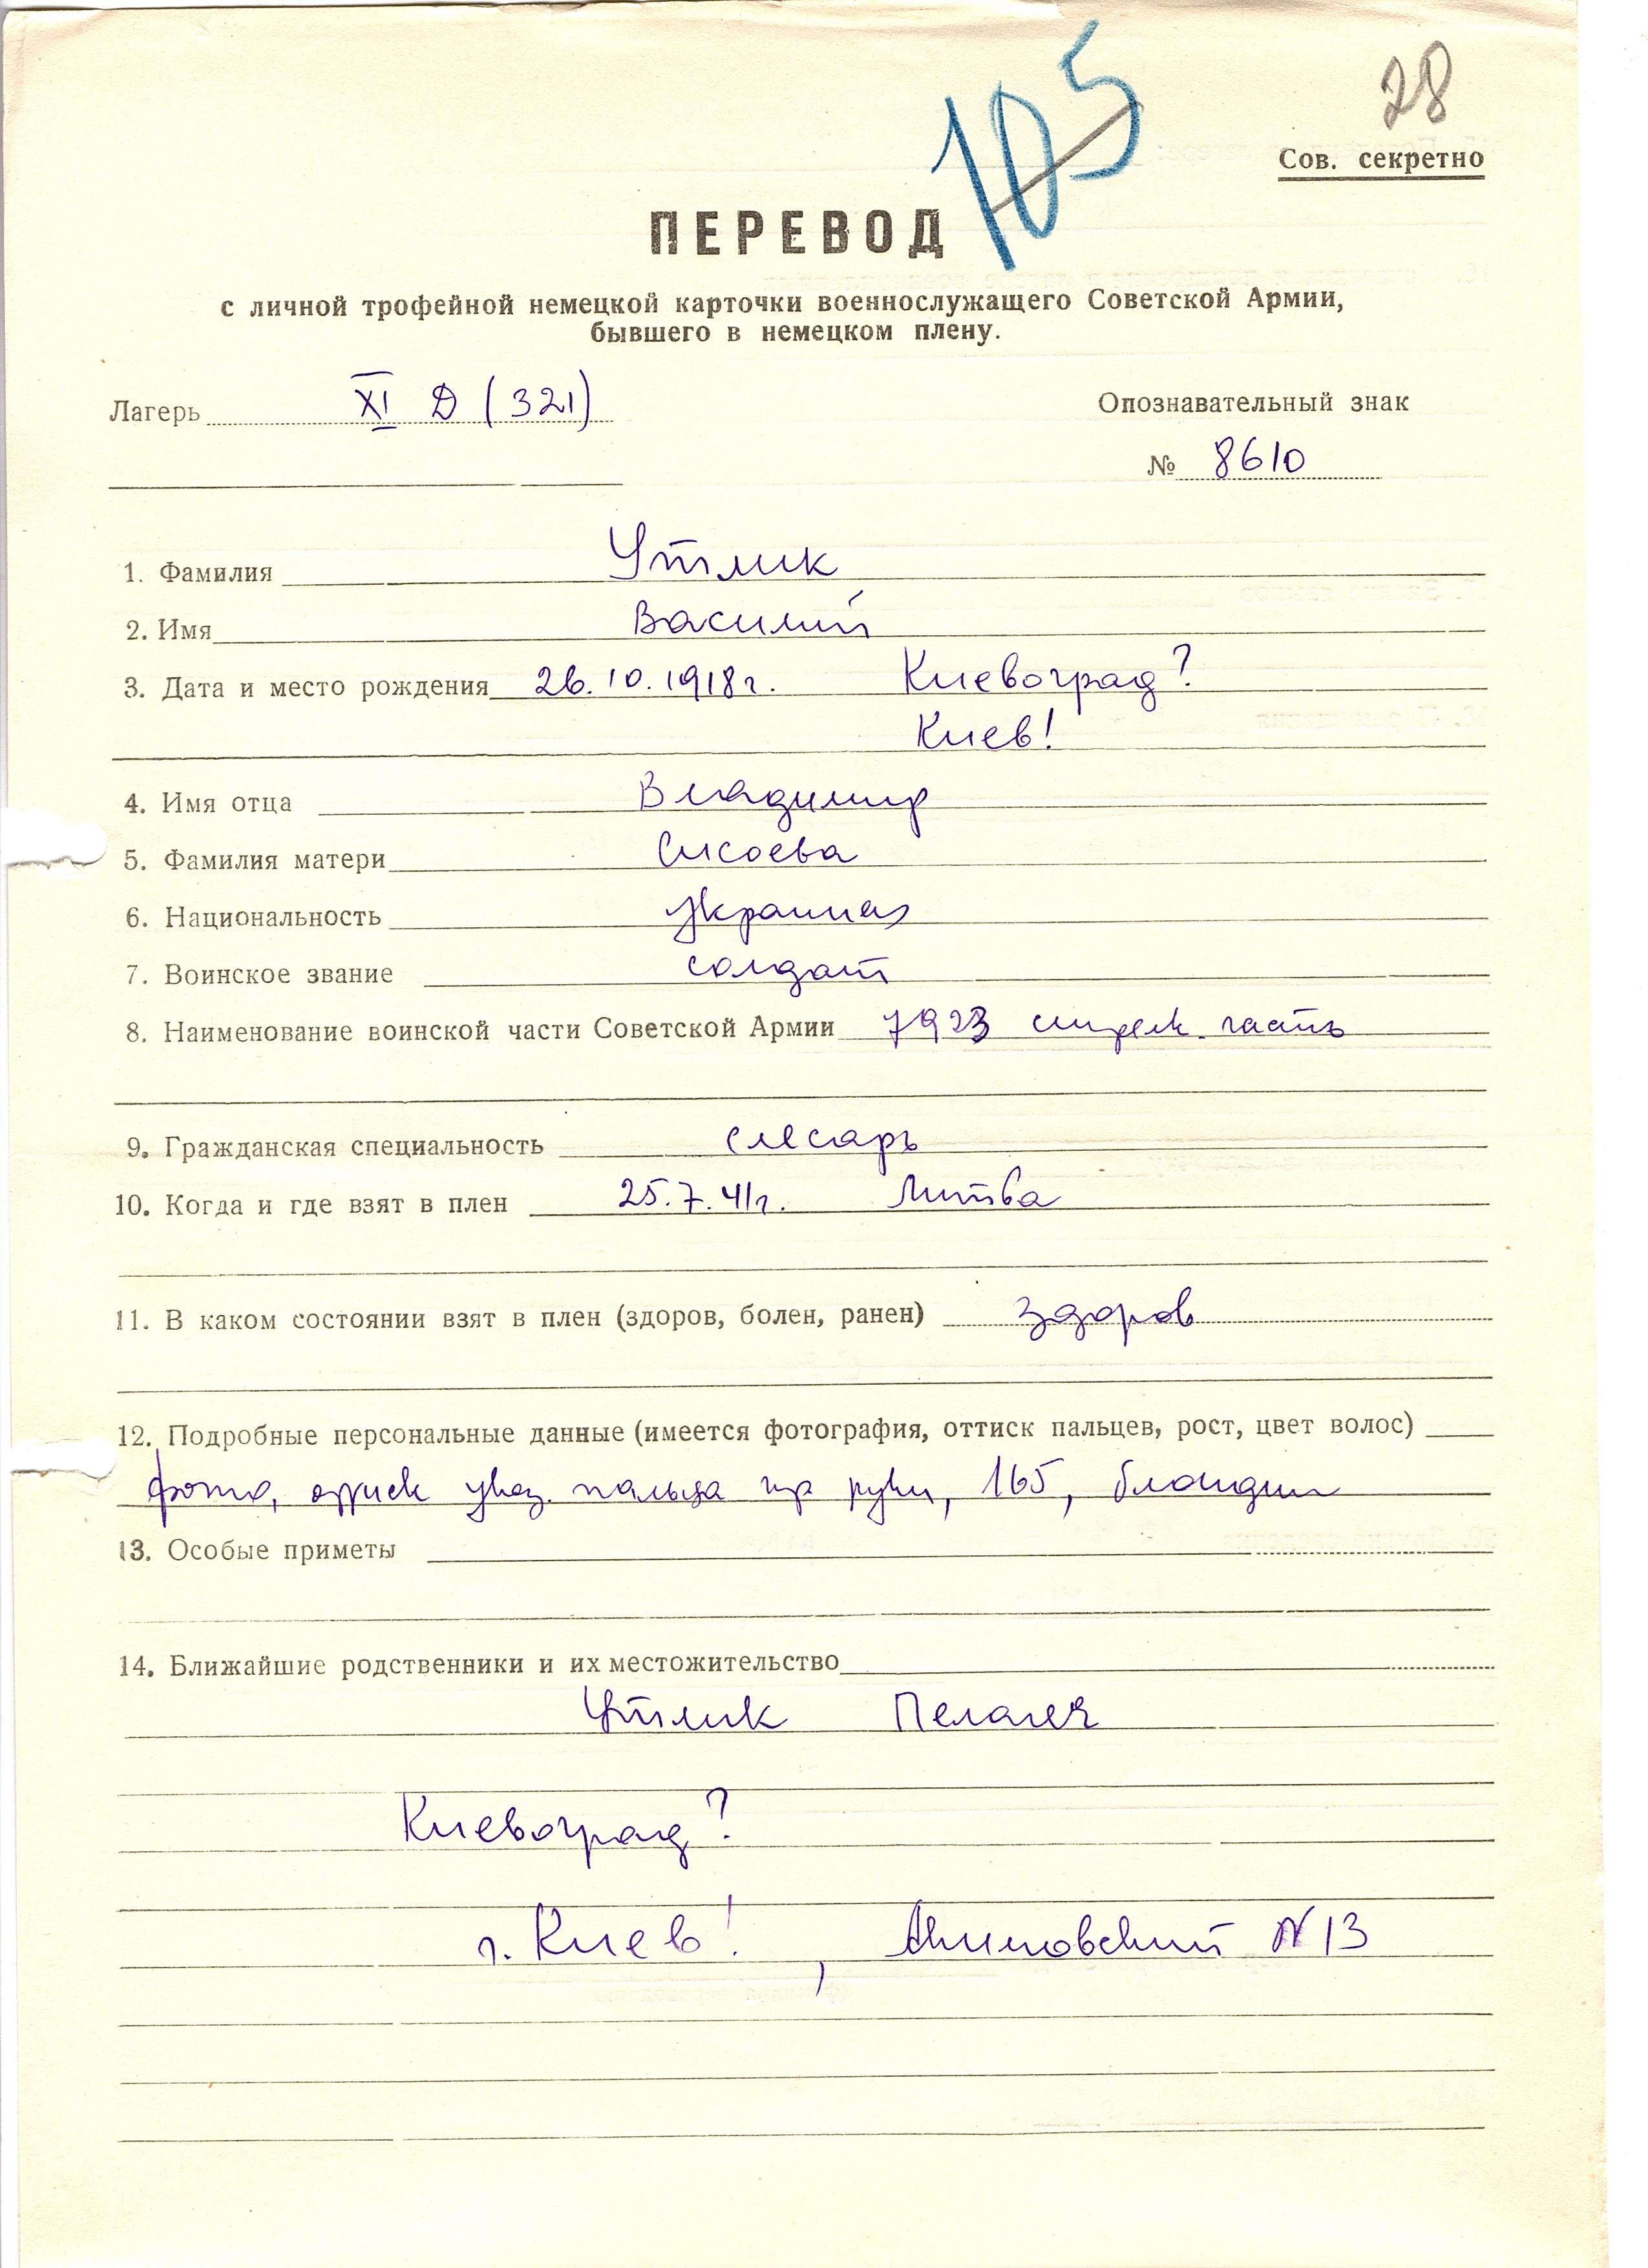 105
28
Сов. секретно
ПЕРЕВОД
с личной трофейной немецкой карточки военнослужащего Советской Армии,
бывшего в немецком плену.
Лагерь XI Д (321)
Опознавательный знак
№ 8610
1. Фамилия Утлик
2. Имя Василий
3. Дата и место рождения 26.10.1918г. Киевоград?
Киев!
4. Имя отца Владимир
5. Фамилия матери Сисоева
6. Национальность
7. Воинское звание солдат
8. Наименование воинской части Советской Армии 7923 стрелк. часть
9. Гражданская специальность слесарь
10. Когда и где взят в плен 25.7.41г. Литва
11. В каком состоянии взят в плен (здоров, болен, ранен) здоров
12. Подробные персональные данные (имеется фотография, оттиск пальцев, рост, цвет волос)
фото, указ. пальца пр руки, 165, блондин
13. Особые приметы
14. Ближайшие родственники и их местожительство
Утлик Пелагея
Киевоград?
г. Киев!, N 13